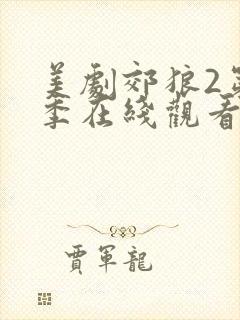 美劇郊狼2第
季在綫觀看
賈軍龍